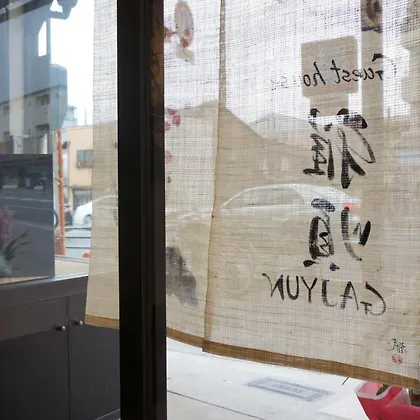 Guest house
雅順
GAJYUN